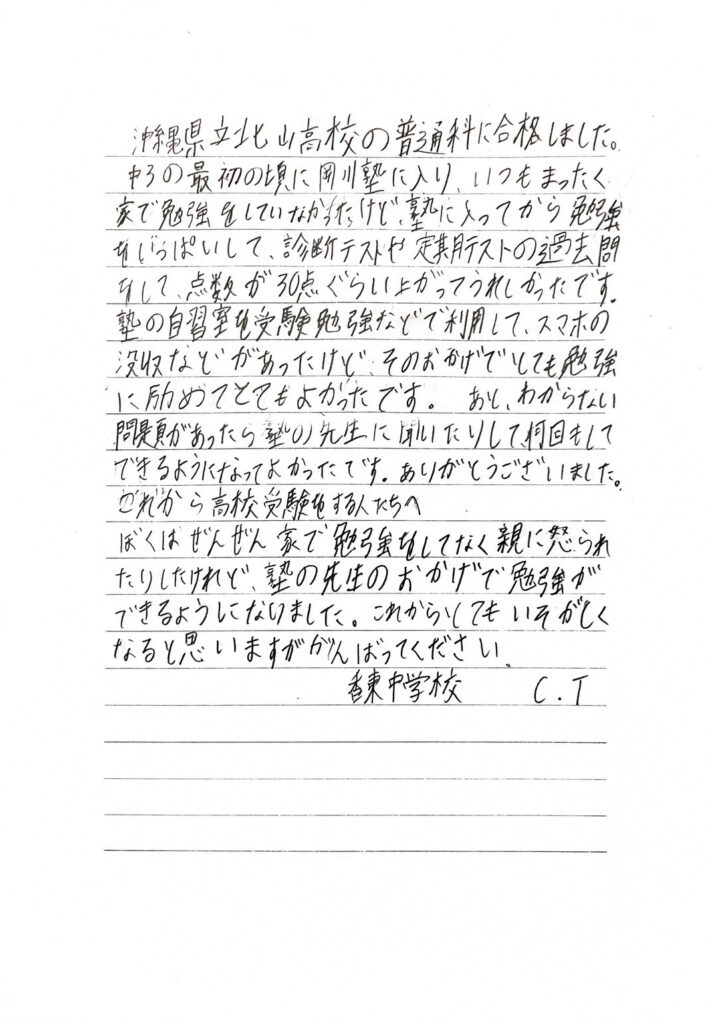 沖縄県立北山高校の普通科に合格しました。
中3の最初の頃に岡川塾に入り、いつもまったく
家で勉強をしていなかったけど、塾に入ってから勉強
をいっぱいして、診断テストや定期テストの過去問
をして、点数が30点ぐらい上がってうれしかったです。
塾の自習室を受験勉強などで利用して、スマホの
没収などがあったけど、そのおかげでとても勉強
に励めてとてもよかったです。 あと、わからない
問題があったら塾の先生に聞いたりして、何回もして
できるようになってよかったです。ありがとうございました。
これから高校受験をする人たちへ
ぼくはぜんぜん家で勉強をしてなく親に怒られ
たりしたけれど、塾の先生のおかげで勉強が
できるようになりました。これからとてもいそがしく
なると思いますががんばってください。
香東中学校 C.T